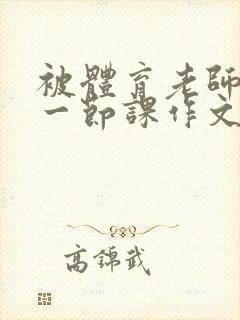 被體育老師
一節課作文
高錦武